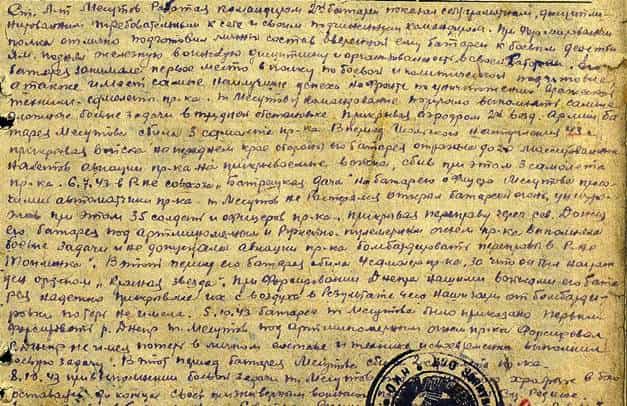 Ст. л-т Месутов работая командиром 2й батареи показал себя грамотным, дисципли-
нированным требовательным к себе и своим подчиненным командиром. При формировании
полка отлично подготовил личный состав вверенной ему батареи к боевым действи
ям, поднял железную воинскую дисциплину и организованность в своей батарее. Его
батарея занимала первое место в полку по боевой и политической подготовке
а также имеет самые наилучшие успехи на фронте по уничтожению вражеской
техники - самолетов пр-ка. т. Месутову командование поручало выполнять самые
сложные боевые задачи в трудной обстановке. Прикрывая аэродром 2й возд. Армии ба
тарея Месутова сбила 3 самолета пр-ка. В период Июльского наступления 43 г.
прикрывая войска на переднем крае обороны его батарея отразила до 20 массированных
налетов авиации пр-ка на прикрываемые войска, сбив при этом 3 самолета
пр-ка. 6.7.43 в р-не совхоза "Батрацкая дача" на батарею офицера Месутова просо-
чились автоматчики пр-ка. т. Месутов не растерялся открыл батареей огонь, уничто-
жив при этом 35 солдат и офицеров пр-ка. Прикрывая переправу через сев. Донец
его батарея под артминометным и ружейно-пулеметным огнем пр-ка выполняла
боевые задачи и не допускала авиации пр-ка бомбардировать переправы в р-не
В этот период его батарея сбила 4 самолета пр-ка, за что он был награж
ден орденом "Красная звезда". При форсировании Днепра нашими войсками его бата
рея надежно прикрывала их с воздуха в результате чего наши части от бомбарди-
ровки потерь не имели. 5.10.43 батарее т. Месутова было приказано первым
форсировать р. Днепр т. Месутов под артминометным огнем пр-ка форсировал
р. Днепр не имея потерь в личном составе и технике и своевременно выполнил
боевую задачу. В этот период батарея Месутова сбила пр-ка.
8.10.43 при выполнении боевой задачи т. Месутов храбрых в бою
оставаясь до конца своей жизни верным воинскому Родине.